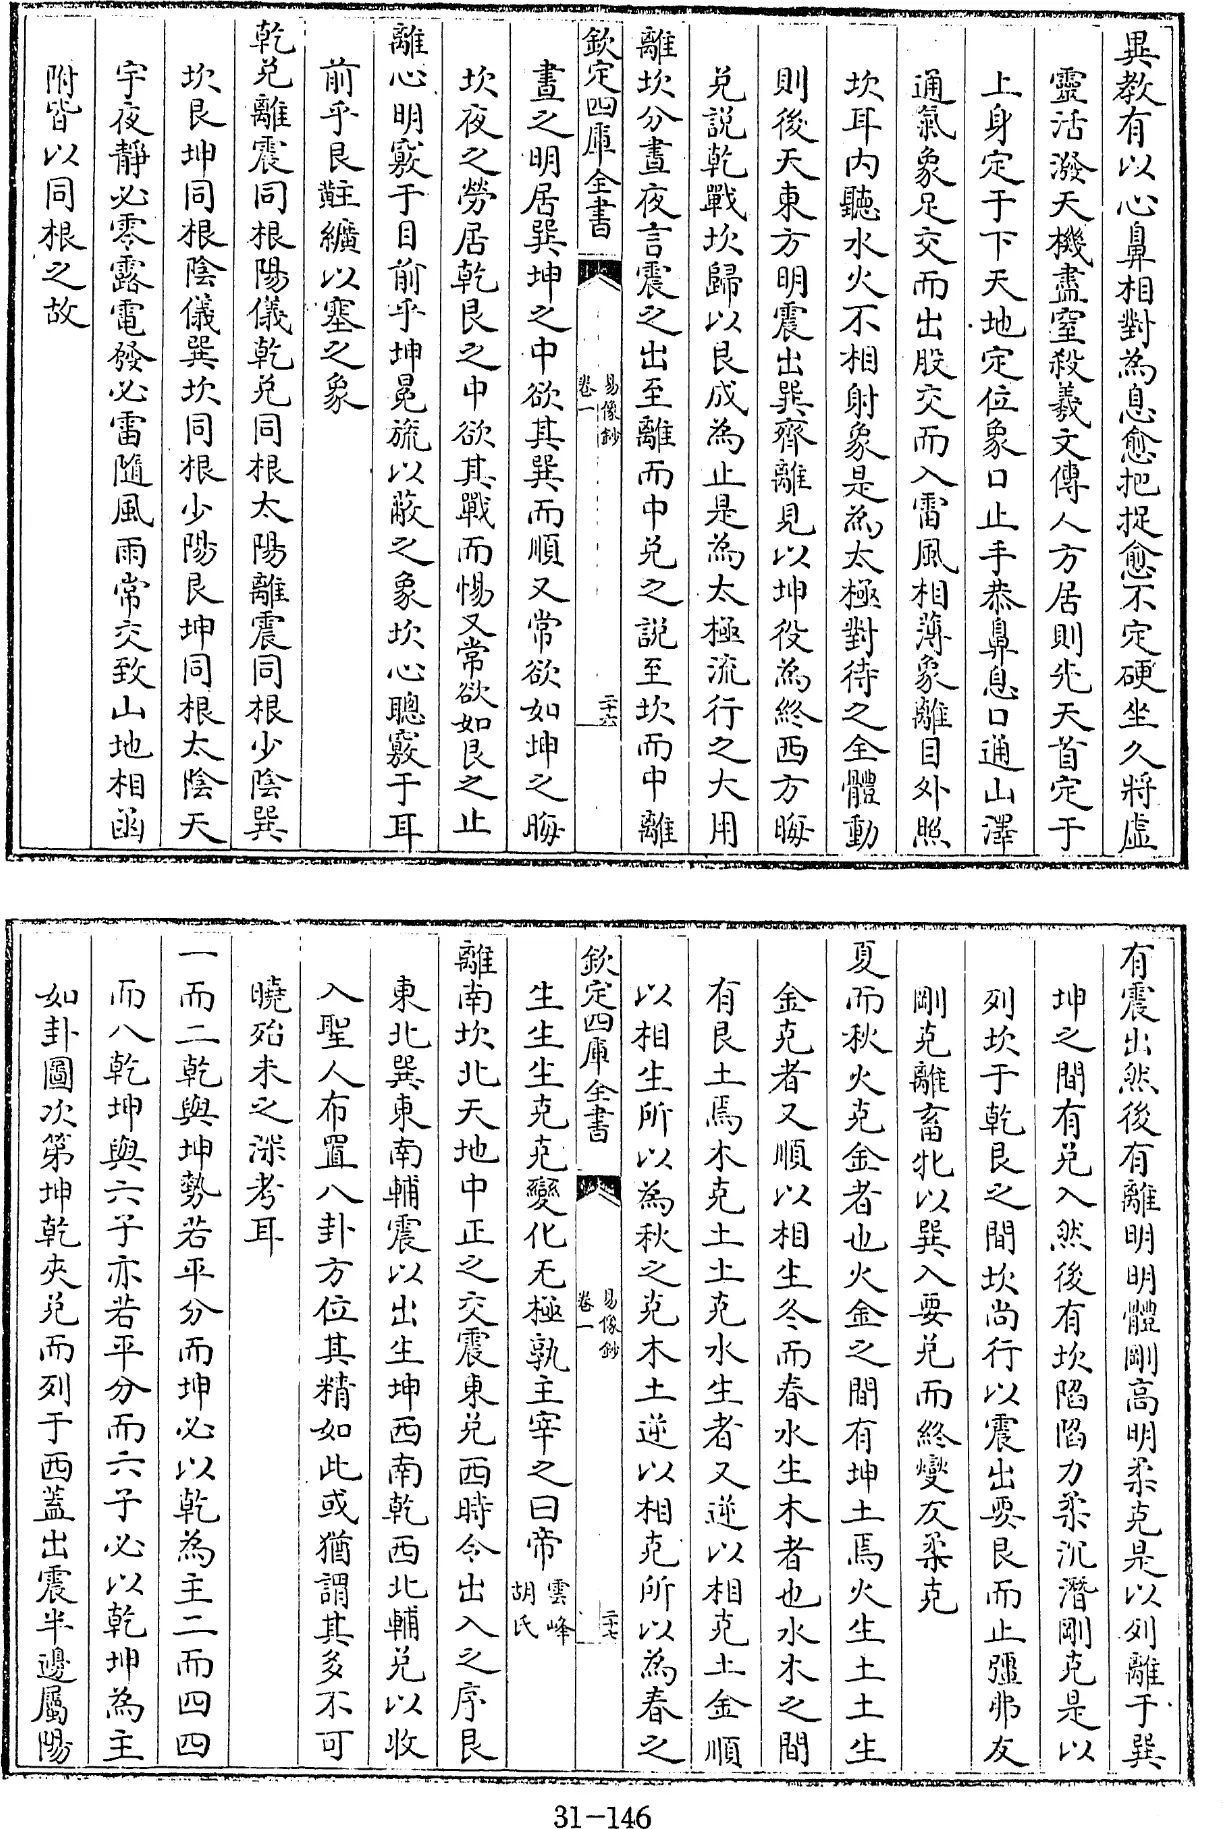 異教有以心鼻相對為息愈把捉愈不定硬坐久將虛
靈活潑天機盡窒殺羲文傳人方居則先天首定于
上身定于下天地定位象口止手恭鼻息口通山澤
通氣象足交而出股交而入雷風相薄象離目外照
坎耳內聽水火不相射象是為太極對待之全體動
則後天東方明震出巽齊離見以坤役為終西方晦
兌説乾戰坎歸以艮成為止是為太極流行之大用
離坎分晝夜言震之出至離而中兌之説至坎而中離
欽定四庫全書
易像鈔
卷一
二十六
晝之明居巽坤之中欲其巽而順又常欲如坤之晦
坎夜之勞居乾艮之中欲其戰而惕又常欲如艮之止
離心明竅于目前乎坤冕旒以蔽之象坎心聰竅于耳
前乎艮黈纊以塞之象
乾兌離震同根陽儀乾兌同根太陽離震同根少陰巽
坎艮坤同根陰儀巽坎同根少陽艮坤同根太陰天
宇夜靜必零露電發必雷隨風雨常交致山地相函
附皆以同根之故
有震出然後有離明明體剛高明柔克是以列離于巽
坤之間有兌入然後有坎陷陷力柔沉潛剛克是以
列坎于乾艮之間坎尚行以震出要艮而止彊弗友
剛克離畜牝以巽入要兌而終燮友柔克
夏而秋火克金者也火金之間有坤土焉火生土土生
金克者又順以相生冬而春水生木者也水木之間
有艮土焉木克土土克水生者又逆以相克土金順
以相生所以為秋之克木土逆以相克所以為春之
欽定四庫全書
易像鈔
卷一
二十七
生生生克克變化无極孰主宰之曰帝雲峰胡氏
離南坎北天地中正之交震東兌西時令出入之序艮
東北巽東南輔震以出生坤西南乾西北輔兌以收
入聖人布置八卦方位其精如此或猶謂其多不可
曉殆未之深考耳
一而二乾與坤勢若平分而坤必以乾為主二而四四
而八乾坤與六子亦若平分而六子必以乾坤為主
如卦圖次第坤乾夾兌而列于西蓋出震半邊屬陽
31-146